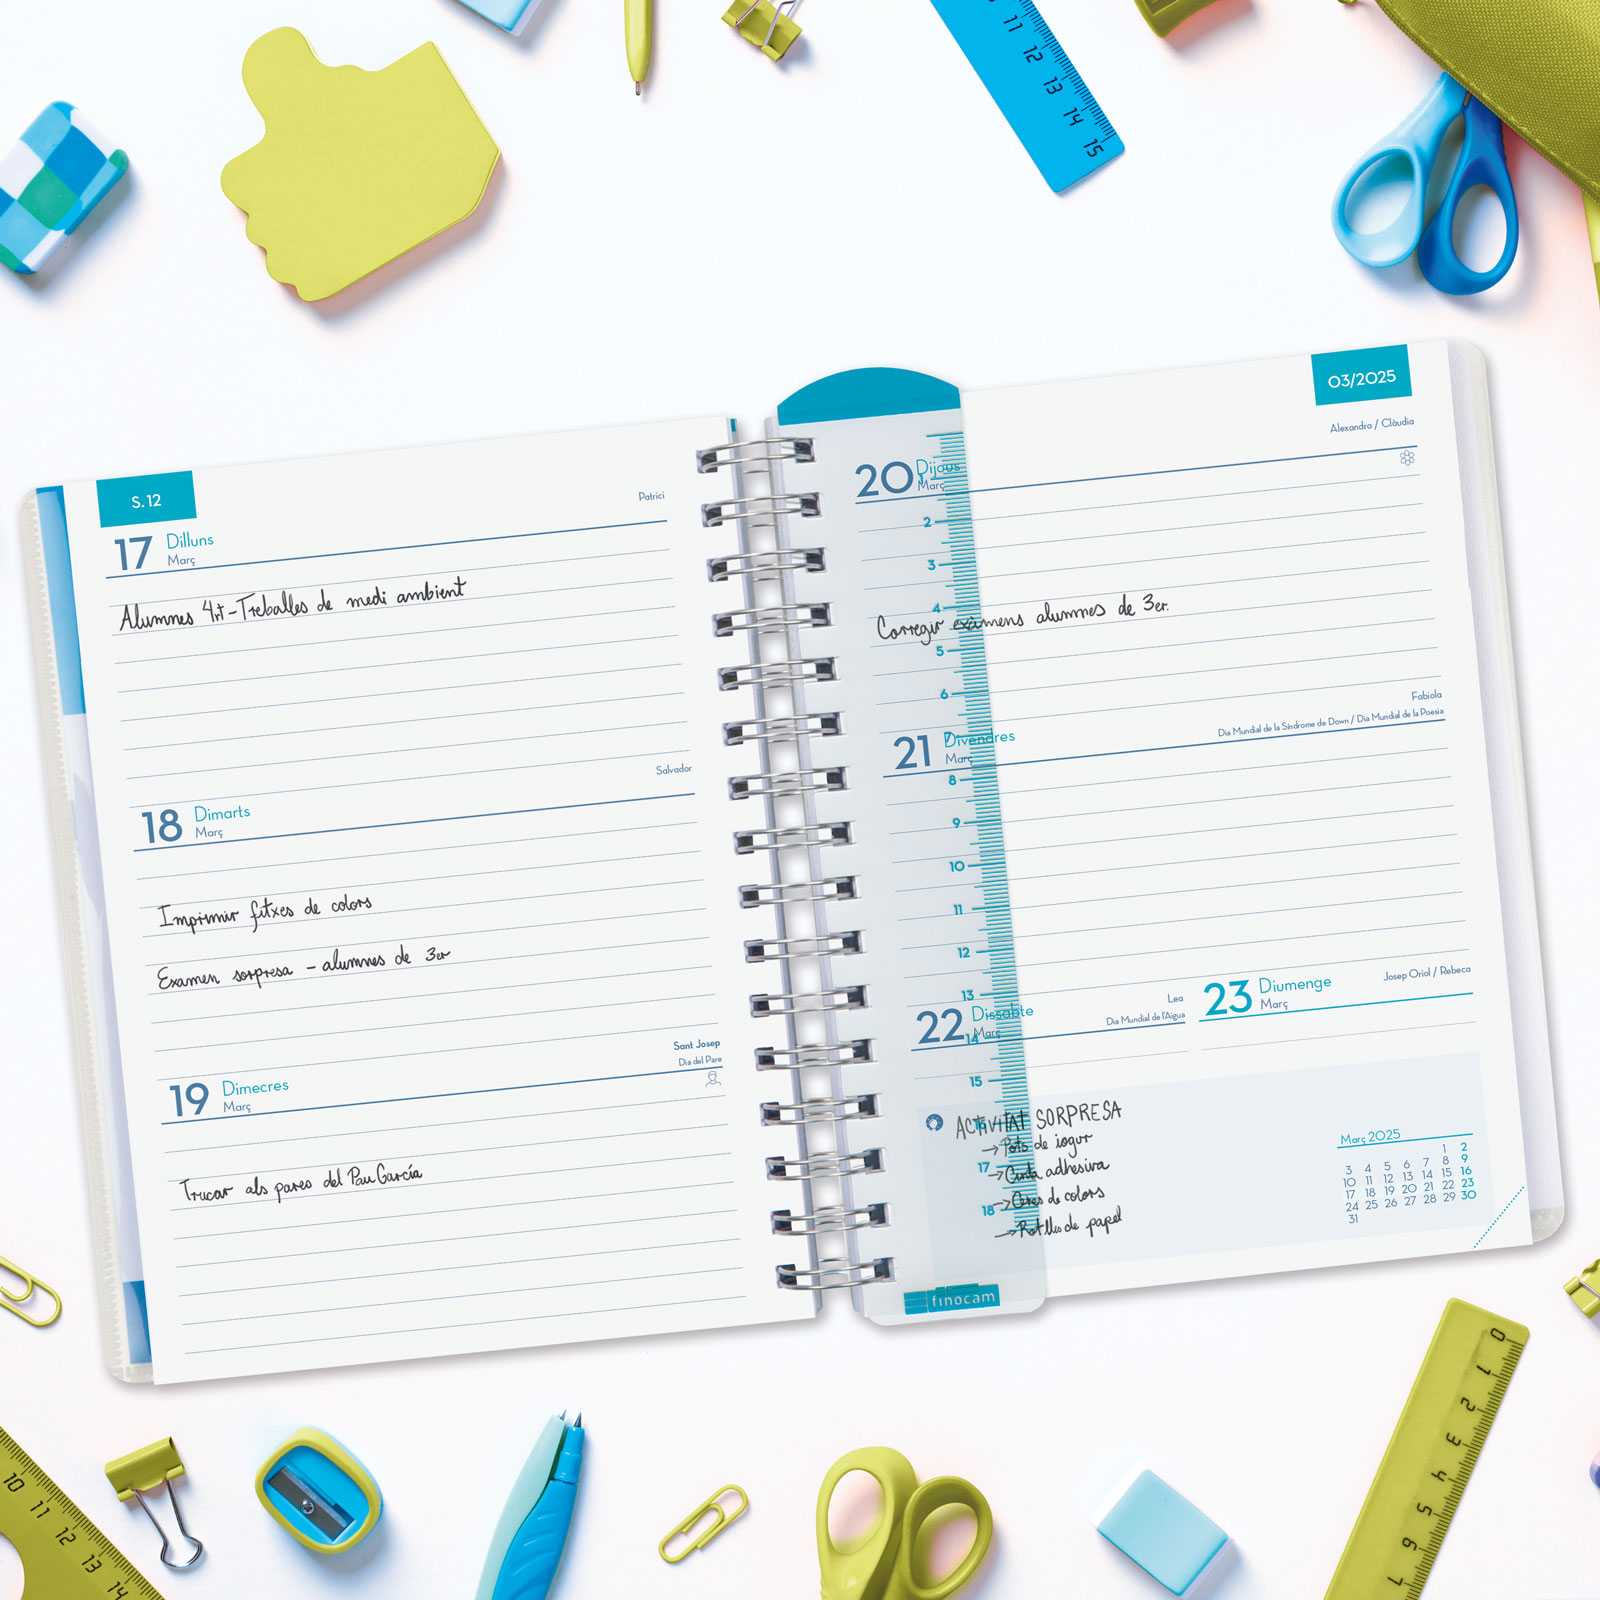 S. 12
Patrici
17 Dilluns
Març
Alumnes 4rt - Treballes de medi ambient
Salvador
18 Dimarts
Març
Imprimir fitxes de colors
Examen sorpresa - alumnes de 3er
Sant Josep
Dia del Pare
19 Dimecres
Març
Trucar als pares del Pau García
03/2025
Alexandra / Clàudia
20 Dijous
Març
Corregir examens alumnes de 3er.
Fabiola
Dia Mundial de la Síndrome de Down / Dia Mundial de la Poesia
21 Divendres
Març
Lea
Dia Mundial de l'Aigua
22 Dissabte
Març
Josep Oriol / Rebeca
23 Diumenge
Març
ACTIVITAT SORPRESA
→ Pots de iogur
→ Cinta adhesiva
→ Ceres de colors
→ Rotlles de papel
Març 2025
1 2
3 4 5 6 7 8 9
10 11 12 13 14 15 16
17 18 19 20 21 22 23
24 25 26 27 28 29 30
31
2
3
4
5
6
7
8
9
10
11
12
13
14
15
16
17
18
finocam
11
12
13
14
15
0
1
2
3
4
5
6
7
10
11
12
13
14